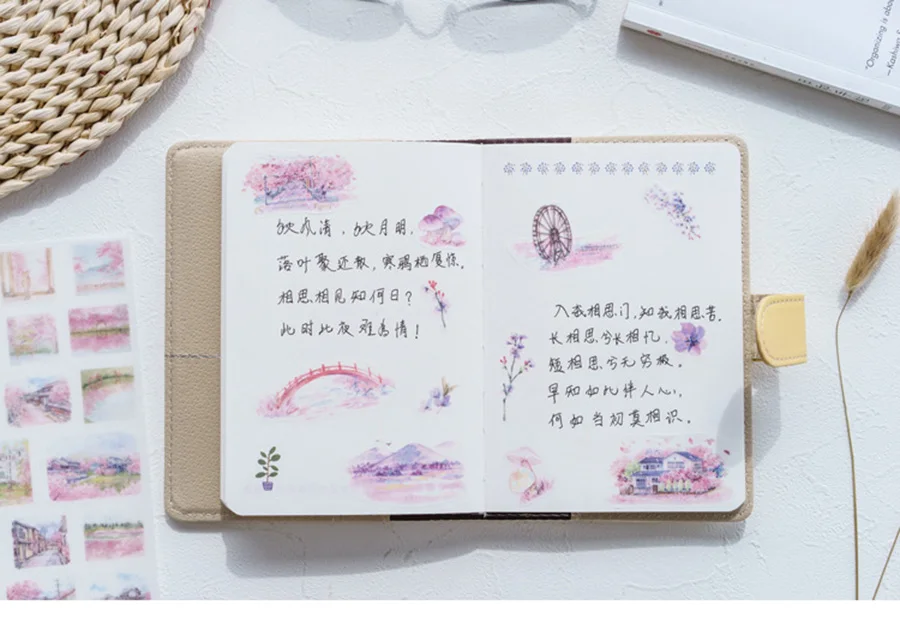 秋风清，秋月明，
落叶聚还散，寒鸦栖复惊。
相思相见知何日？
此时此夜难为情！
入我相思门，知我相思苦。
长相思兮长相忆，
短相思兮无穷极。
早知如此绊人心，
何如当初莫相识。
"Organizing is
—Kashiwa